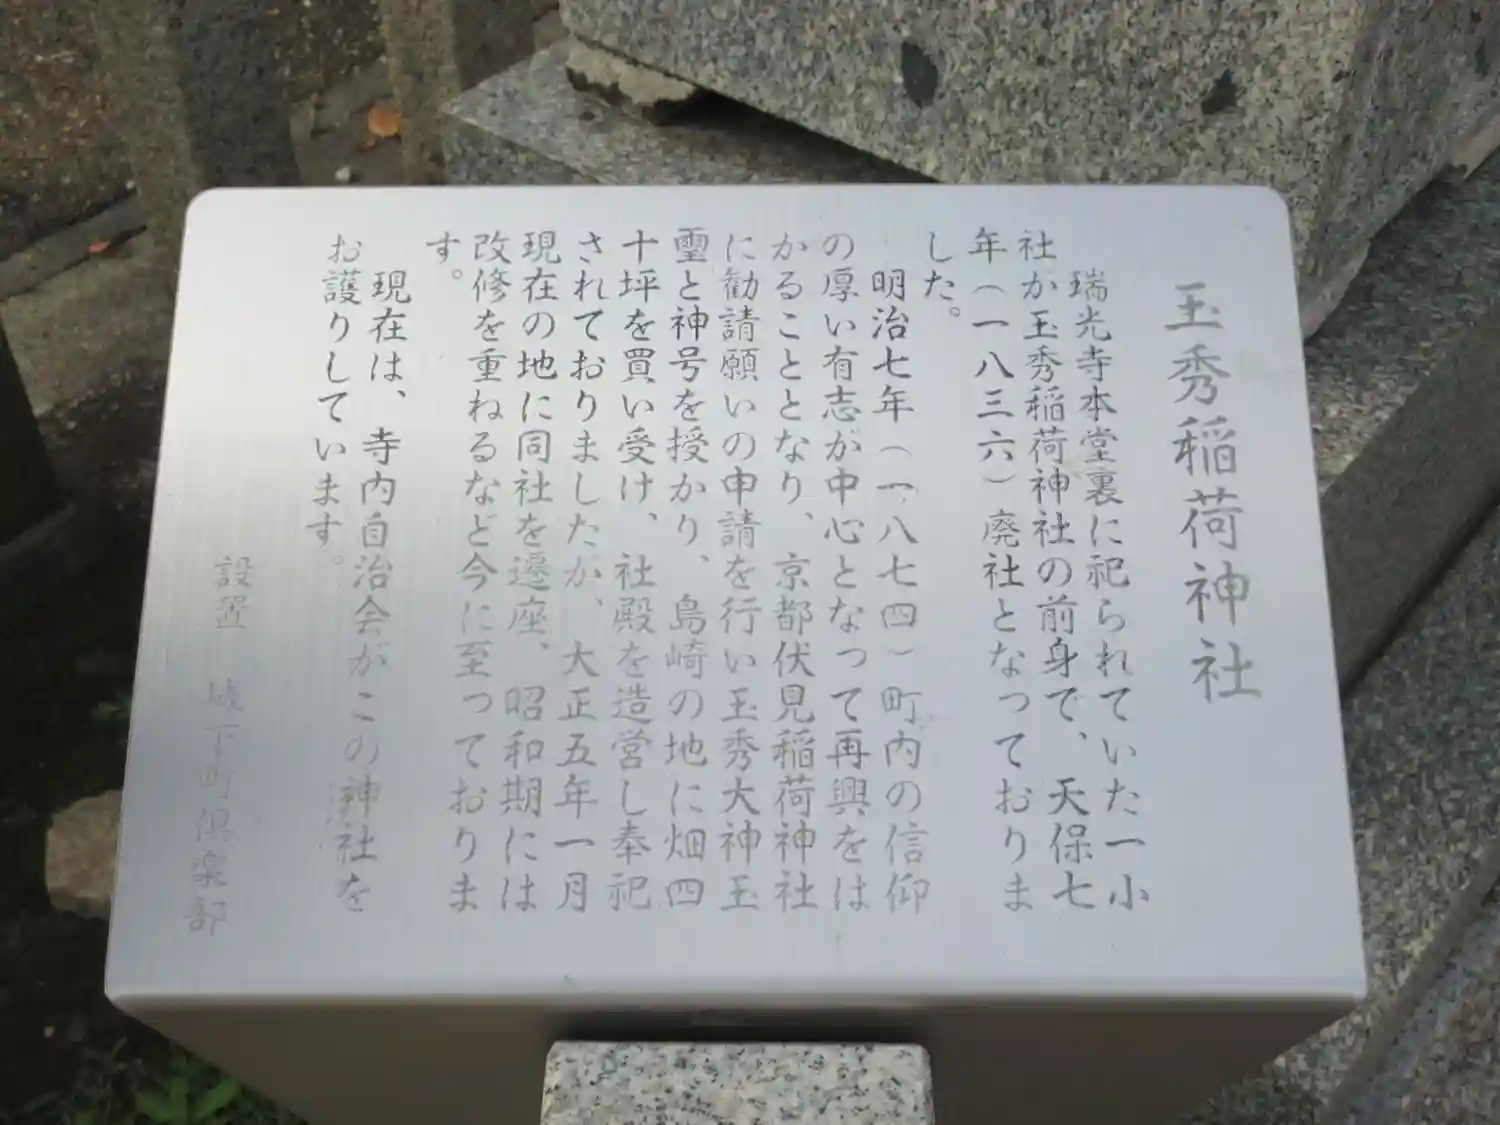 玉秀稲荷神社
瑞光寺本堂裏に祀られていた一小
社が玉秀稲荷神社の前身で、天保七
年(一八三六)廃社となっておりま
した。
明治七年(一八七四)町内の信仰
の厚い有志が中心となって再興をは
かることとなり、京都伏見稲荷神社
に勧請願いの申請を行い玉秀大神玉
璽と神号を授かり、島崎の地に畑四
十坪を買い受け、社殿を造営し奉祀
されておりましたが、大正五年一月
現在の地に同社を遷座、昭和期には
改修を重ねるなど今に至っておりま
す。
現在は、寺内自治会がこの神社を
お護りしています。
設置 城下町倶楽部